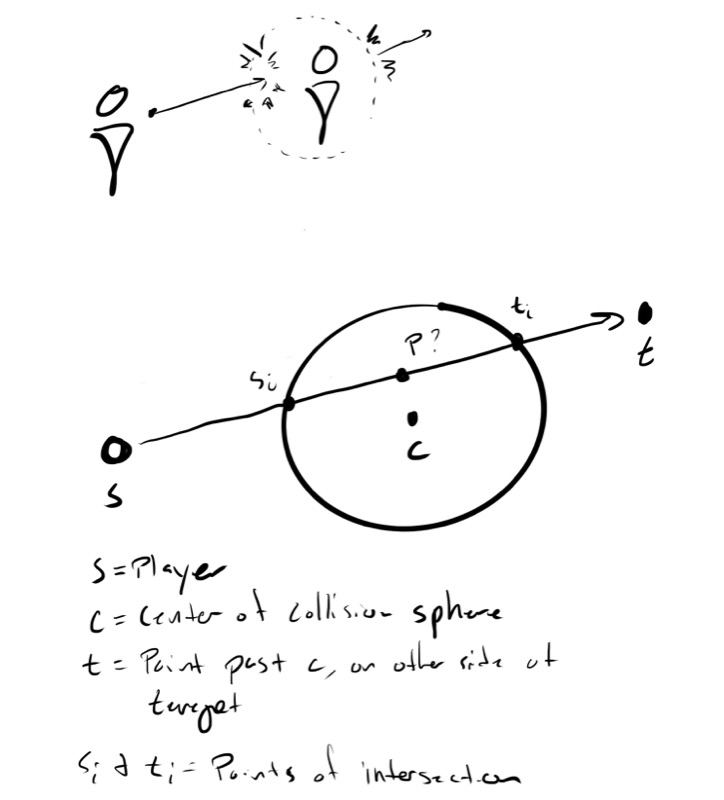 P?
ti
si
t
c
s
S = Player
C = Center of collision sphere
t = Point past c, on other side of
target
Si & ti = Points of intersection